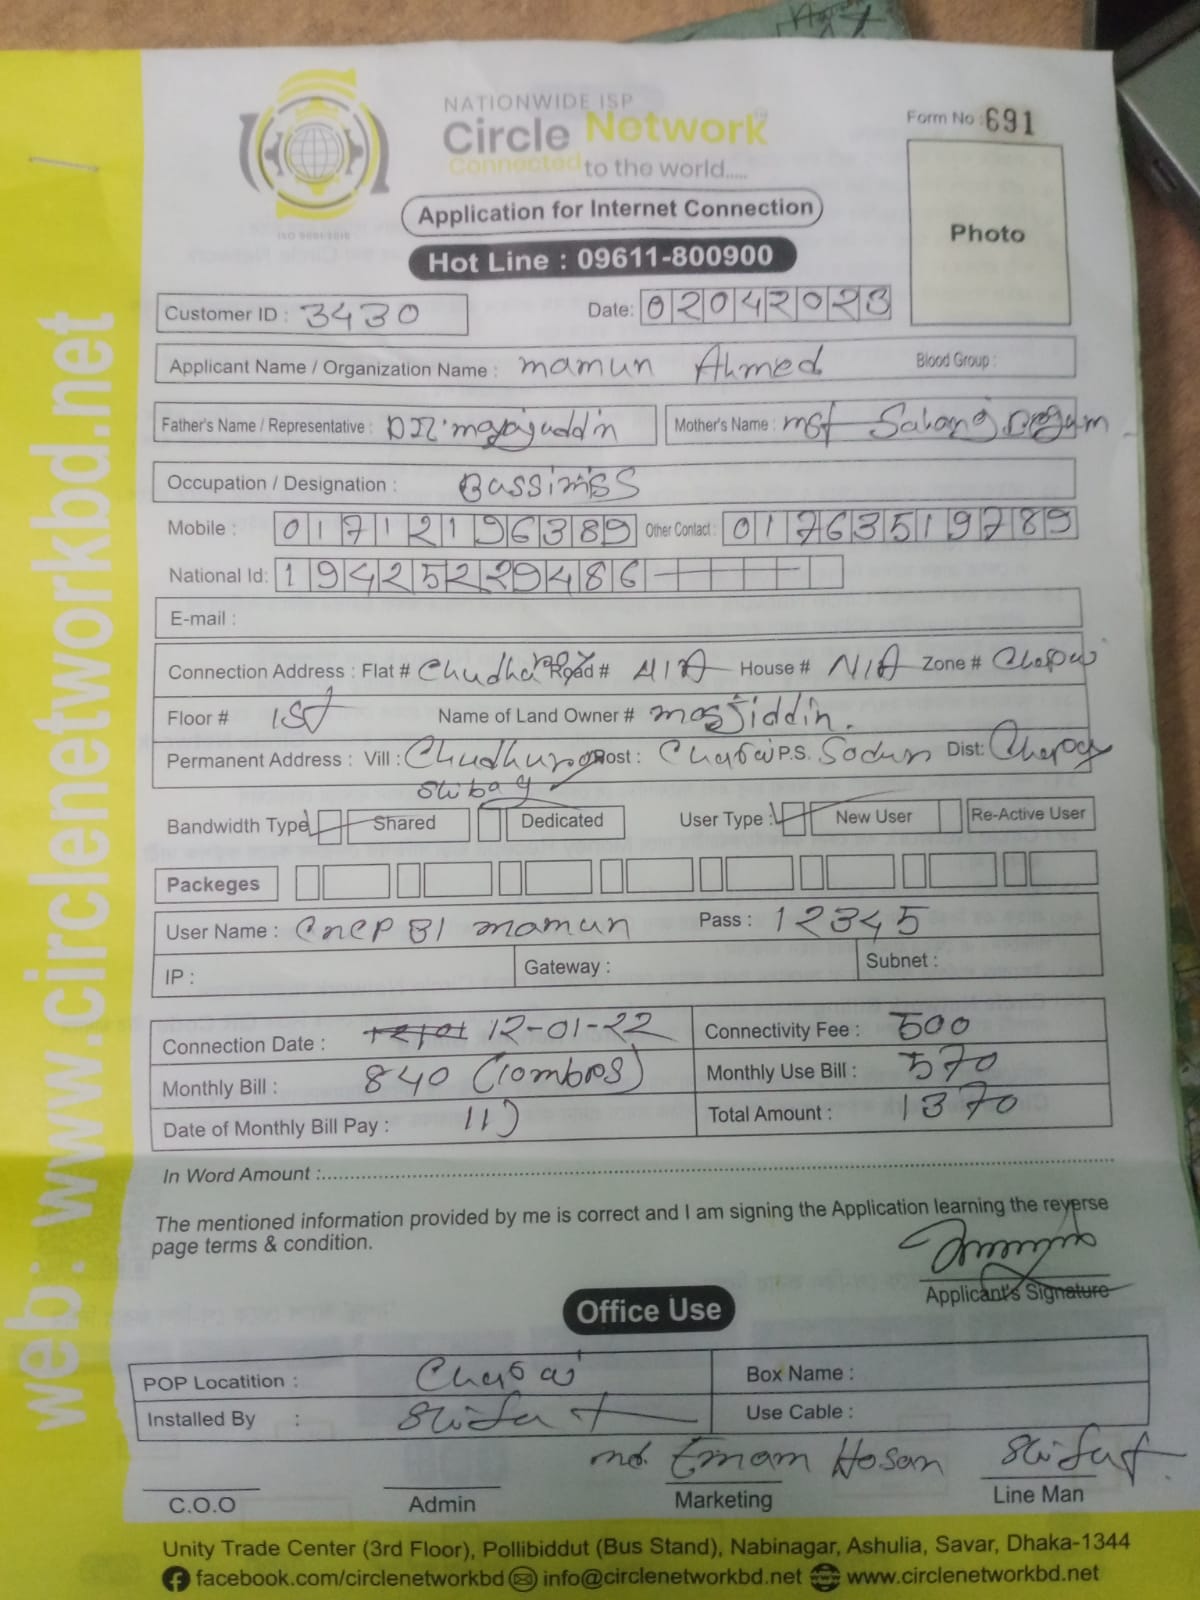 NATIONWIDE ISP
Circle Network
Connected to the world.....
Form No : 691
Photo
ISO 9001:2015
Application for Internet Connection
Hot Line : 09611-800900
Customer ID : 3430
Date: 02042023
Applicant Name / Organization Name : mamun Ahmed Blood Group :
Father's Name / Representative : Mother's Name : mst
Occupation / Designation :
Mobile : 01712196389 Other Contact : 01763519789
National Id: 194252229486
E-mail :
Connection Address : Flat # Road # N/A House # N/A Zone #
Floor # 1st Name of Land Owner #
Permanent Address : Vill : Post : P.S. Dist:
Bandwidth Type Shared Dedicated User Type : New User Re-Active User
Packeges
User Name : Pass : 12345
IP : Gateway : Subnet :
Connection Date : 12-01-22 Connectivity Fee : 500
Monthly Bill : 840 (10mbps) Monthly Use Bill : 570
Date of Monthly Bill Pay : Total Amount : 1370
In Word Amount :
The mentioned information provided by me is correct and I am signing the Application learning the reverse
page terms & condition.
Applicant's Signature
Office Use
POP Locatition : Box Name :
Installed By : Shifat Use Cable :
md. Emam Hosan Shifat
C.O.O Admin Marketing Line Man
Unity Trade Center (3rd Floor), Pollibiddut (Bus Stand), Nabinagar, Ashulia, Savar, Dhaka-1344
facebook.com/circlenetworkbd info@circlenetworkbd.net www.circlenetworkbd.net
web: www.circlenetworkbd.net